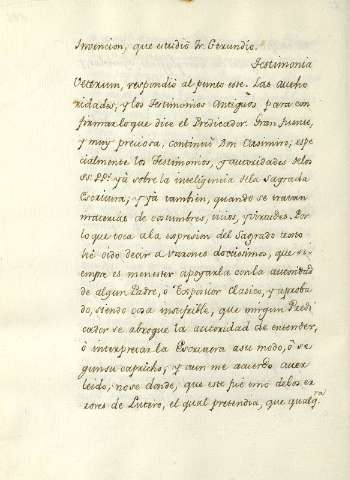 Invencion, que estudiò Fr. Gerundio.
Testimonia
Veterum, respondiò al punto este. Las autho
ridades, y los Testimonios Antiguos para con
firmar lo que dice el Predicador. Gran fuente,
y muy preciosa, continuò Don Casimiro; espe
cialmente los Testimonios, y autoridades delos
SS. PP.s yà sobre la inteligencia dela Sagrada
Escritura; y yà tambien, quando se tratan
materias de costumbres, vicios, y virtudes. Por
lo que toca ala expresion del Sagrado texto
hè oido decir a varones doctissimos, que si-
empre es menester apoyarla conla autoridad
de algun Padre, ò Expositor Clasico, y aproba
do, siendo cosa insufrible, que ningun Predi
cador se abrogue la autoridad de entender,
ò interpretar la Escritura a su modo, ò se
gun su capricho; y aun me acuerdo aver
leido, no se donde, que este fuè uno delos er
rores de Lutero, el qual pretendia, que qualq.ra